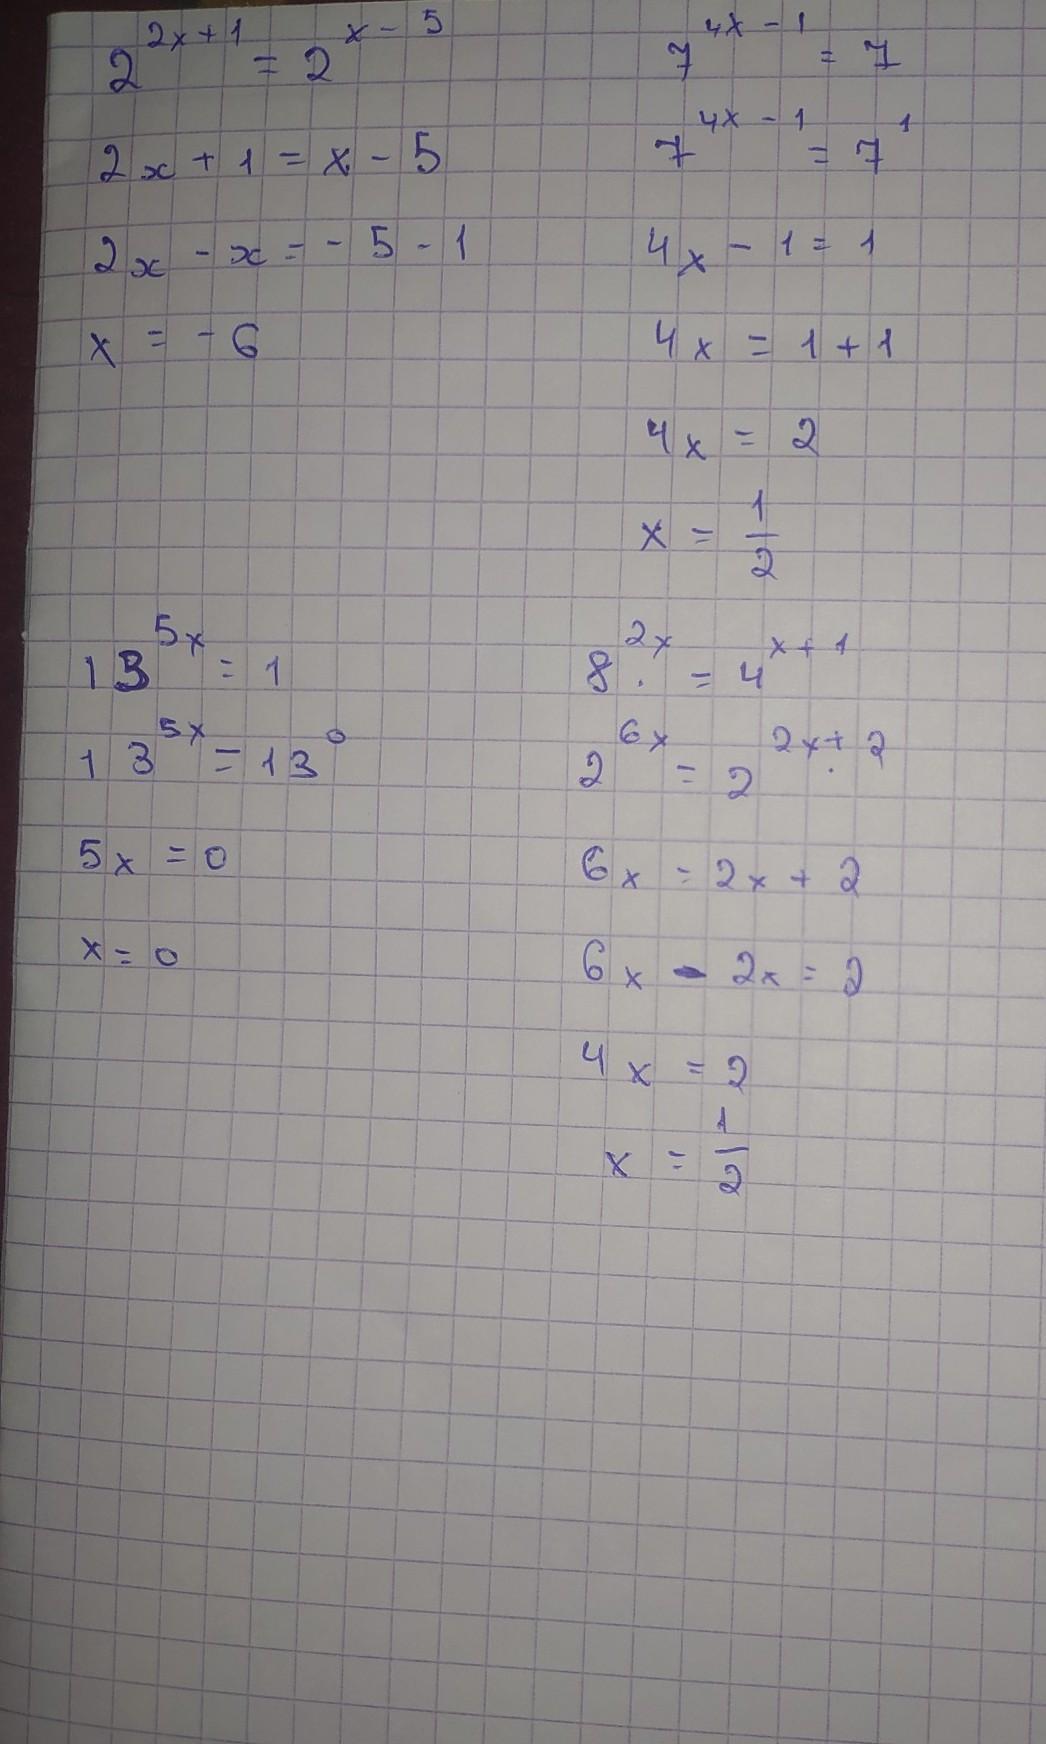 2^{2x+1} = 2^{x-5}
2x + 1 = x - 5
2x - x = - 5 - 1
x = - 6
7^{4x-1} = 7
7^{4x-1} = 7^1
4x - 1 = 1
4x = 1 + 1
4x = 2
x = \frac{1}{2}
13^{5x} = 1
13^{5x} = 13^0
5x = 0
x = 0
8^{2x} = 4^{x+1}
2^{6x} = 2^{2x+2}
6x = 2x + 2
6x - 2x = 2
4x = 2
x = \frac{1}{2}